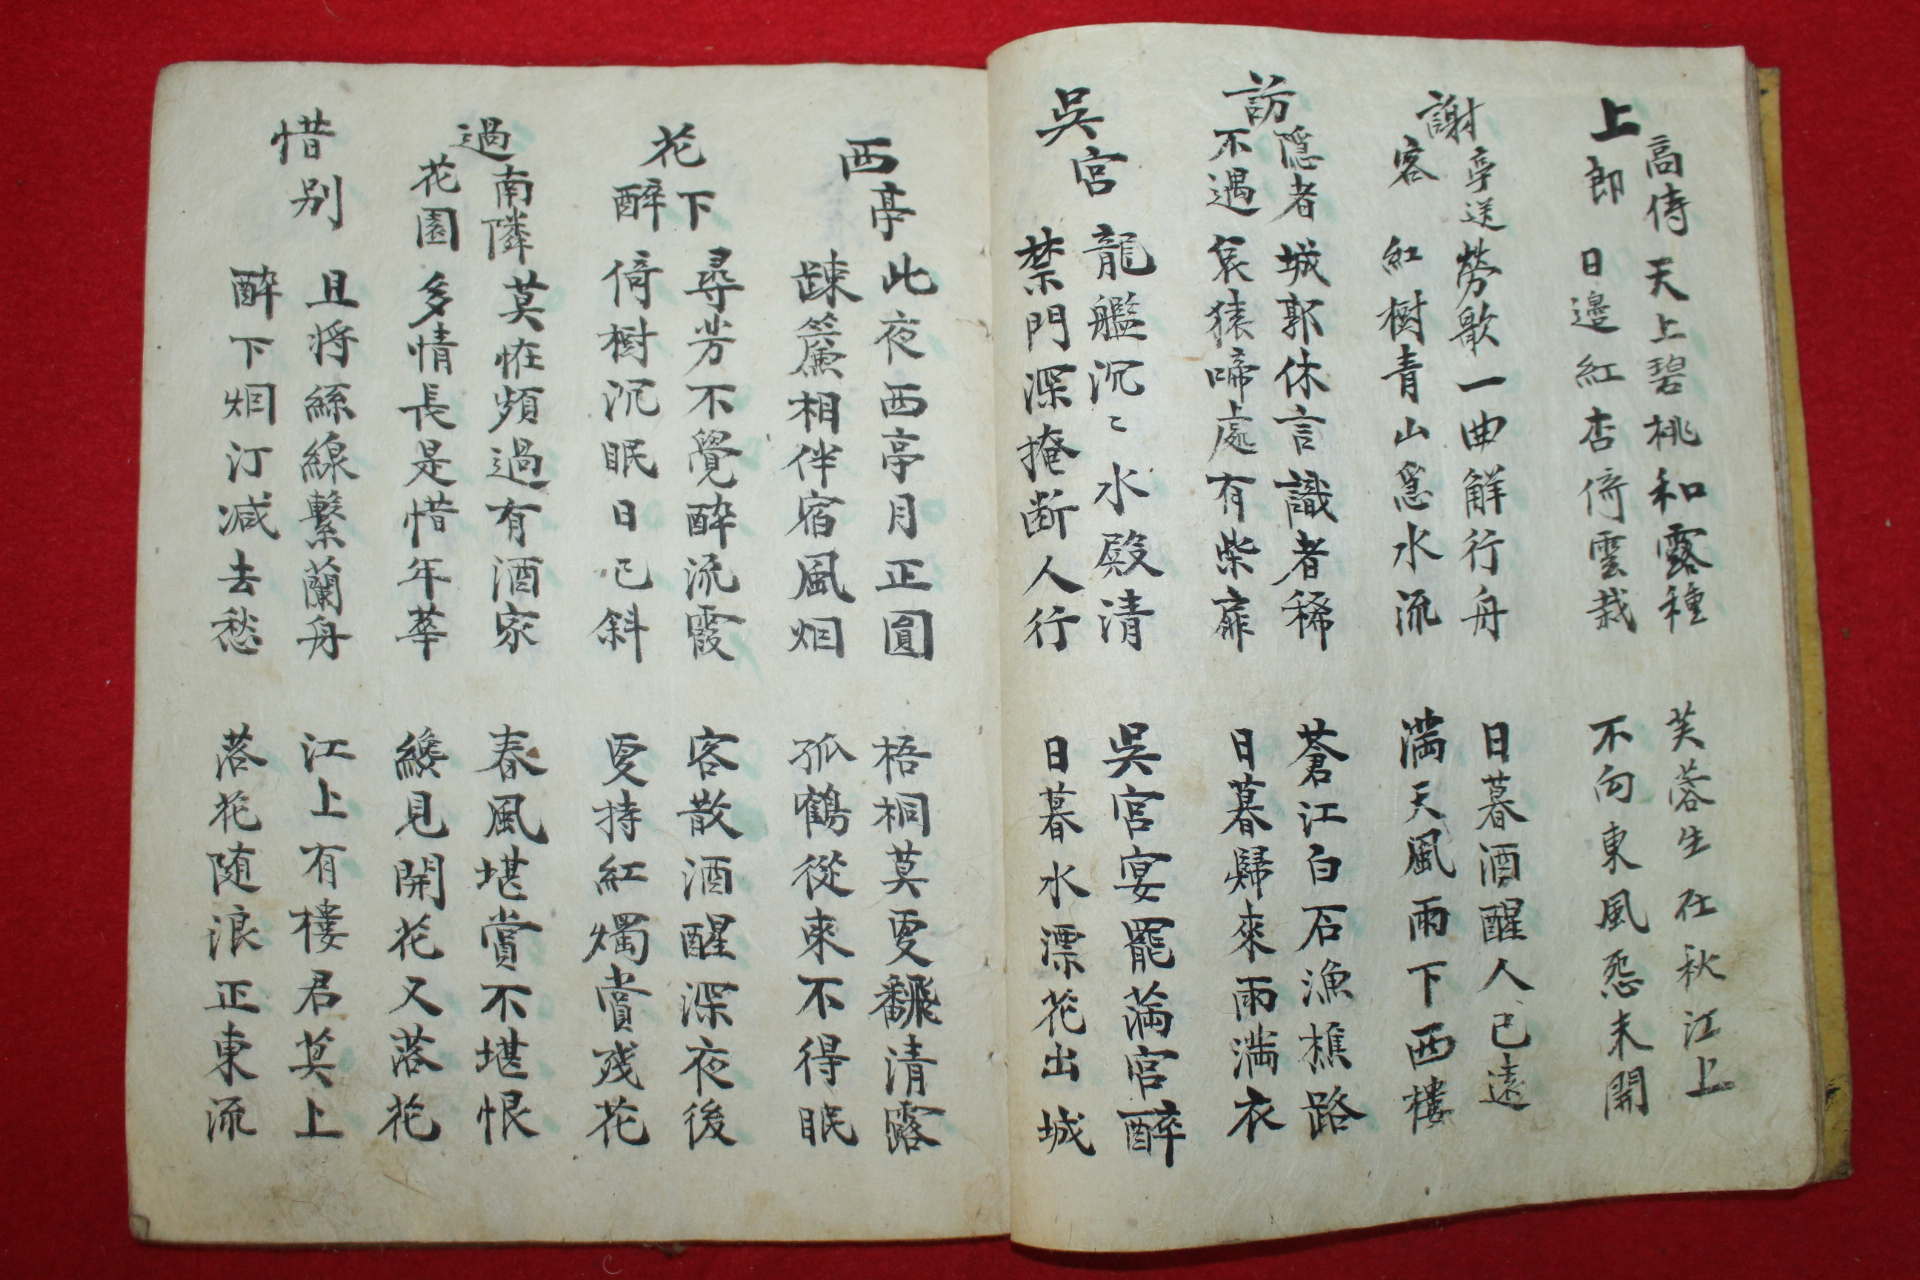 上高侍郎
天上碧桃和露種
芙蓉生在秋江上
日邊紅杏倚雲栽
不向東風怨未開
謝亭送客
勞歌一曲解行舟
日暮酒醒人已遠
紅樹青山急水流
滿天風雨下西樓
訪隱者不遇
城郭休言識者稀
蒼江白石漁樵路
哀猿啼處有柴扉
日暮歸來雨滿衣
吳宮
龍艦沉〻水殿清
吳宮宴罷滿宮醉
禁門深掩断人行
日暮水漂花出城
西亭
此夜西亭月正圓
梧桐莫更飜清露
踈簾相伴宿風烟
孤鶴從來不得眠
花下醉
尋芳不覺醉流霞
客散酒醒深夜後
倚樹沉眠日已斜
更持紅燭賞残花
過南隣花園
莫恠頻過有酒家
春風堪賞不堪恨
多情長是惜年華
纔見開花又落花
惜别
且將絲線繫蘭舟
江上有樓君莫上
醉下烟汀減去愁
落花随浪正東流